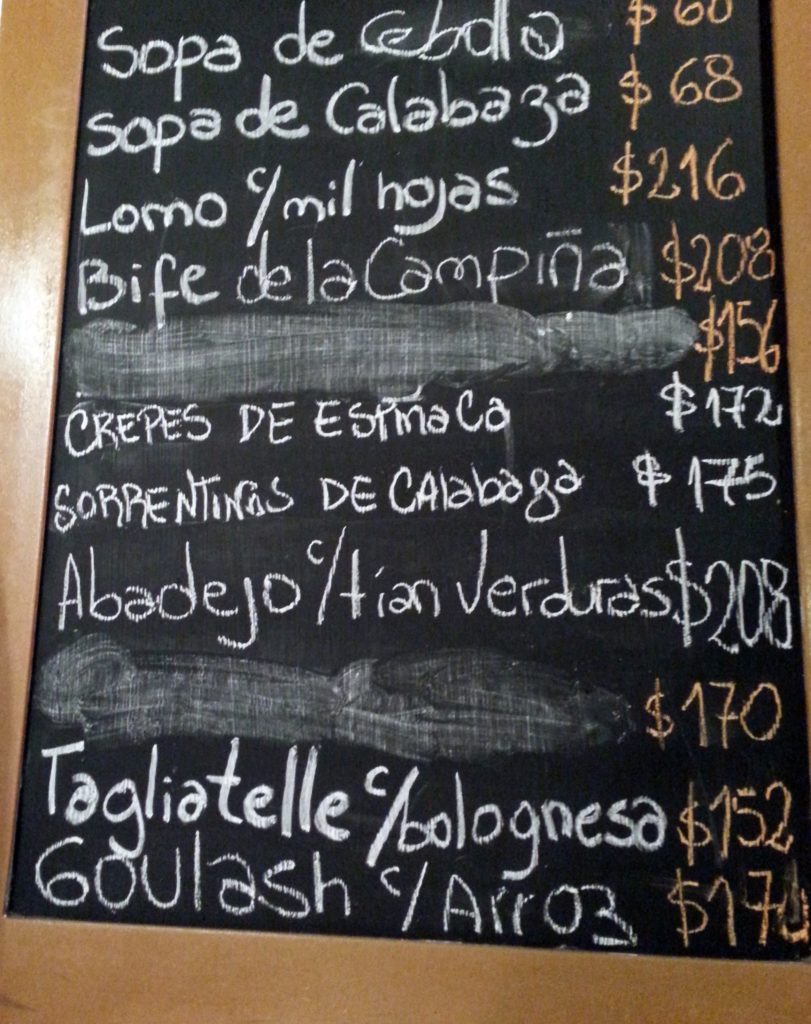 Sopa de Cebolla $ 60
Sopa de Calabaza $ 68
Lomo c/mil hojas $216
Bife de la Campiña $208
$156
CREPES DE ESPINaCa $172
SORRENTINOS DE CALabaza $ 175
Abadejo c/tian verduras $208
$170
Tagliatelle c/bolognesa $152
Goulash c/ Arroz